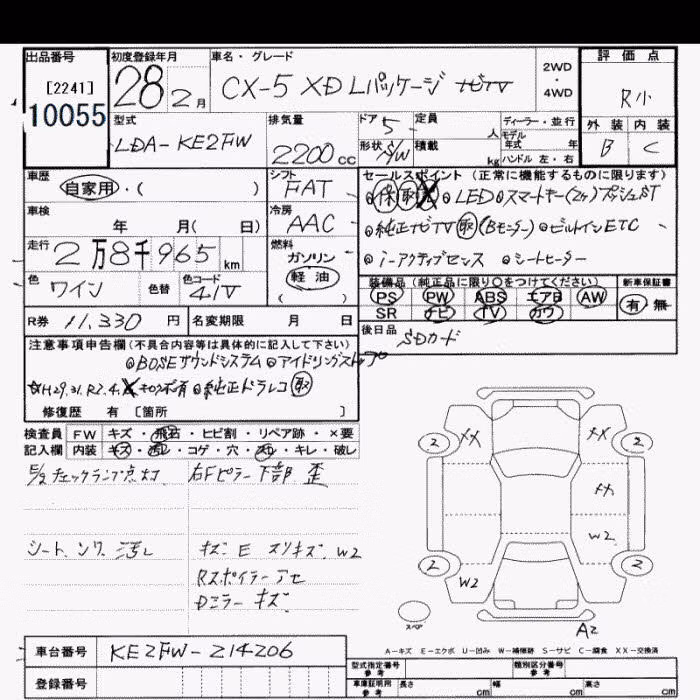 出品番号
[2241]
10055
初度登録年月
28年 2月
車名・グレード
CX-5 XD Lパッケージ ナビTV
2WD
・
4WD
評価点
R小
外装 内装
B C
型式
LDA-KE2FW
排気量
2200 cc
ドア 5
形状 S/W
定員 人
積載 kg
ディーラー・並行
モデル年式 年
ハンドル 左・右
車歴
自家用・( )
シフト
FAT
車検
年 月( 日)
冷房
AAC
走行
2万8千965 km
燃料
ガソリン
軽油
( )
色
ワイン
色替
色コード
41V
R券 11,330 円
名変期限 月 日
セールスポイント (正常に機能するものに限ります)
保 取 ◎LED ◎スマートキー(2ケ)プッシュST
◎純正ナビTV 取 (Bモニター) ◎ビルトインETC
◎i-アクティブセンス ◎シートヒーター
装備品 (純正品に限り○をつけてください)
PS PW ABS エアB AW
SR ナビ TV カワ
新車保証書
有・無
後日品
SDカード
注意事項申告欄 (不具合内容等は具体的に記入して下さい)
◎BOSEサウンドシステム ◎アイドリングストップ
☆H29.31.R2.4. キロク有 ◎純正ドラレコ 取
修復歴 有 [箇所 ]
検査員 FW キズ・飛石・ヒビ割・リペア跡・×要
記入欄 内装 キズ・汚レ・コゲ・穴・スレ・キレ・破レ
E/gチェックランプ点灯
右Fピラー下部 歪
シート、ンワ 汚レ
キズ E スリキズ W2
Rスポイラーアセ
Dミラーキズ
2 XX XX 2
XX
W2
2 W2 2
スペア
A2
A-キズ E-エクボ U-凹み W-補修跡 S-サビ C-腐食 XX-交換済
車台番号 KE2FW-214206
登録番号
型式指定番号
参考
類別区分番号
参考
車庫証明用
参考
長さ cm 幅 cm 高さ cm